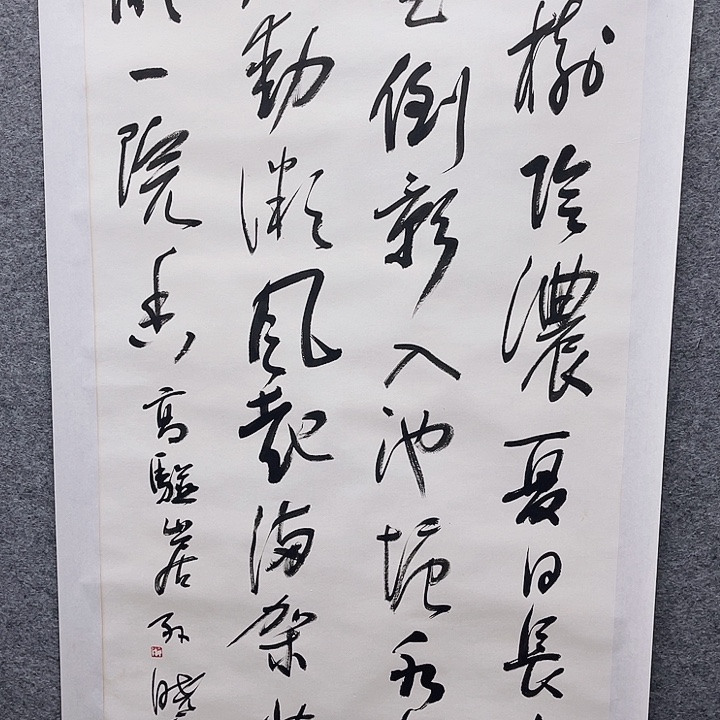 樹陰濃夏日長
倒影入池塘水
動微風起滿架
一院香 高駢山居 孙曉